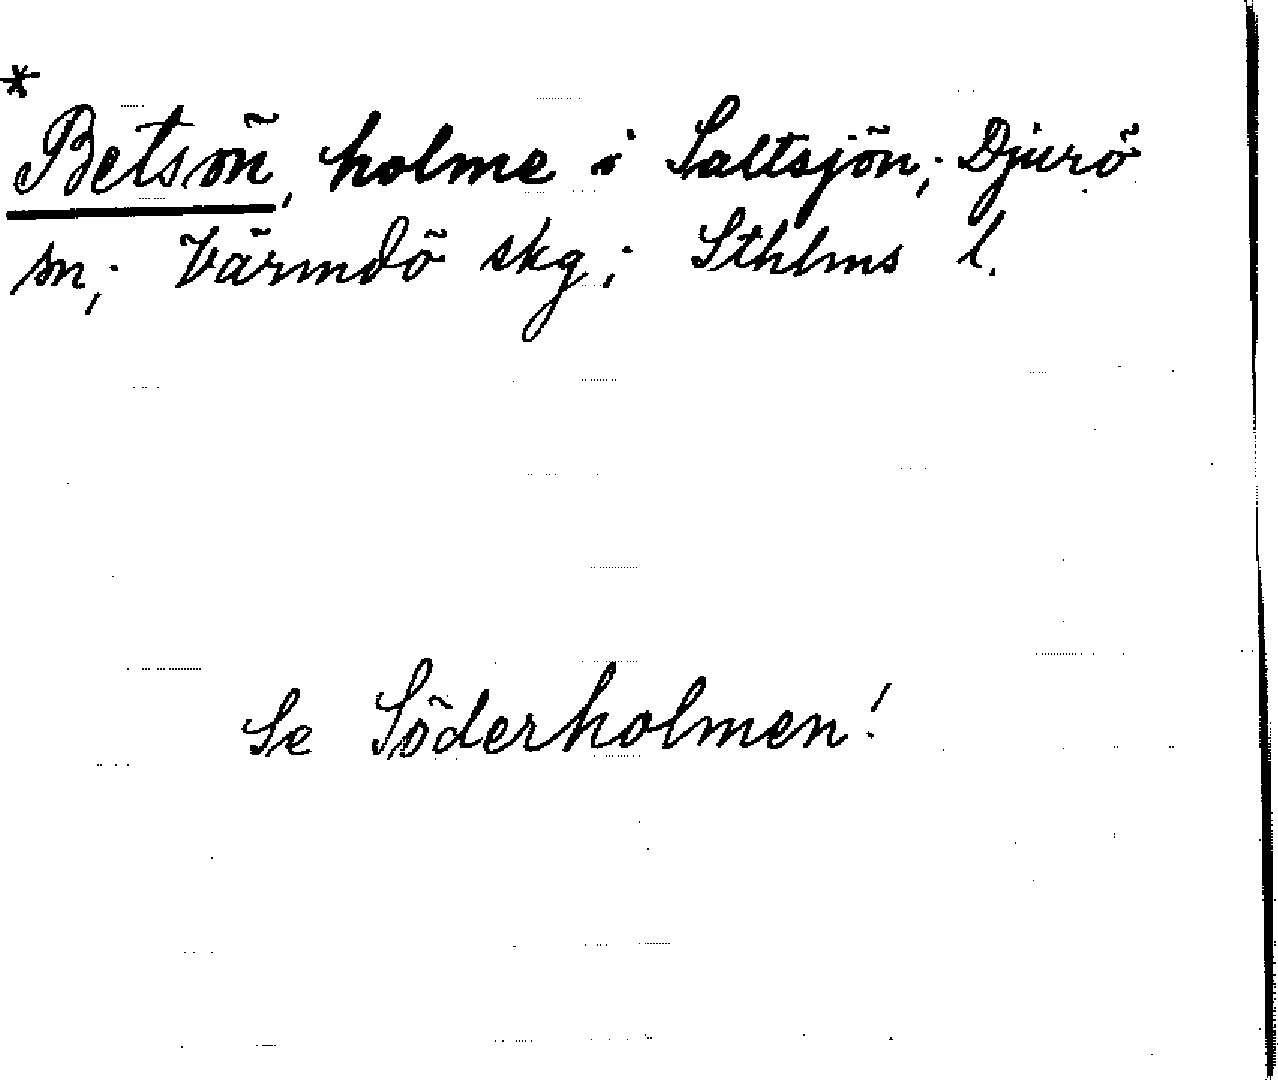 *
Betsön, holme i Saltsjön; Djurö
sn; Värmdö skg; Sthlms l.
Se Söderholmen!